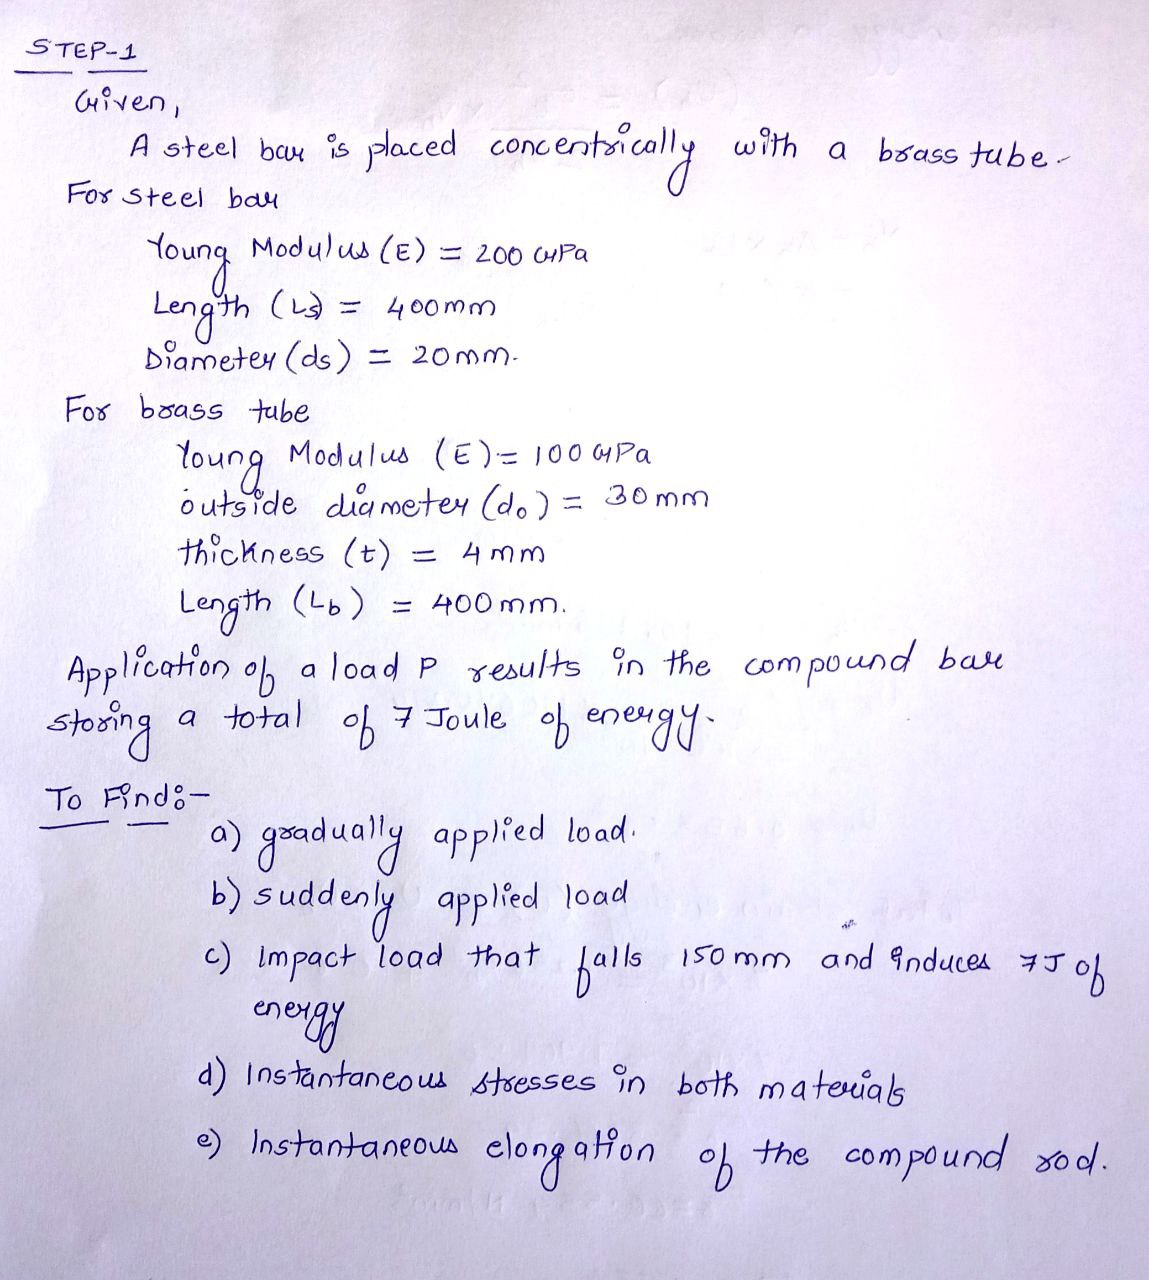 STEP-1
Given,
A steel bar is placed concentrically with a brass tube.
For steel bar
Young Modulus (E) = 200 GPa
Length (Ls) = 400mm
Diameter (ds) = 20mm.
For brass tube
Young Modulus (E) = 100 GPa
outside diameter (do) = 30mm
thickness (t) = 4mm
Length (Lb) = 400mm.
Application of a load P results in the compound bar
storing a total of 7 Joule of energy.
To Find:-
a) gradually applied load.
b) suddenly applied load
c) impact load that falls 150mm and induces 7J of
energy
d) Instantaneous stresses in both materials
e) Instantaneous elongation of the compound rod.